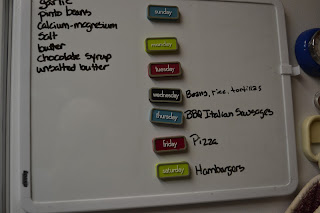 garlic
pinto beans
calcium-magnesium
salt
butter
chocolate syrup
unsalted butter
sunday
monday
tuesday
wednesday Beans, rice, tortillas
thursday BBQ Italian Sausages
friday Pizza
saturday Hambargers